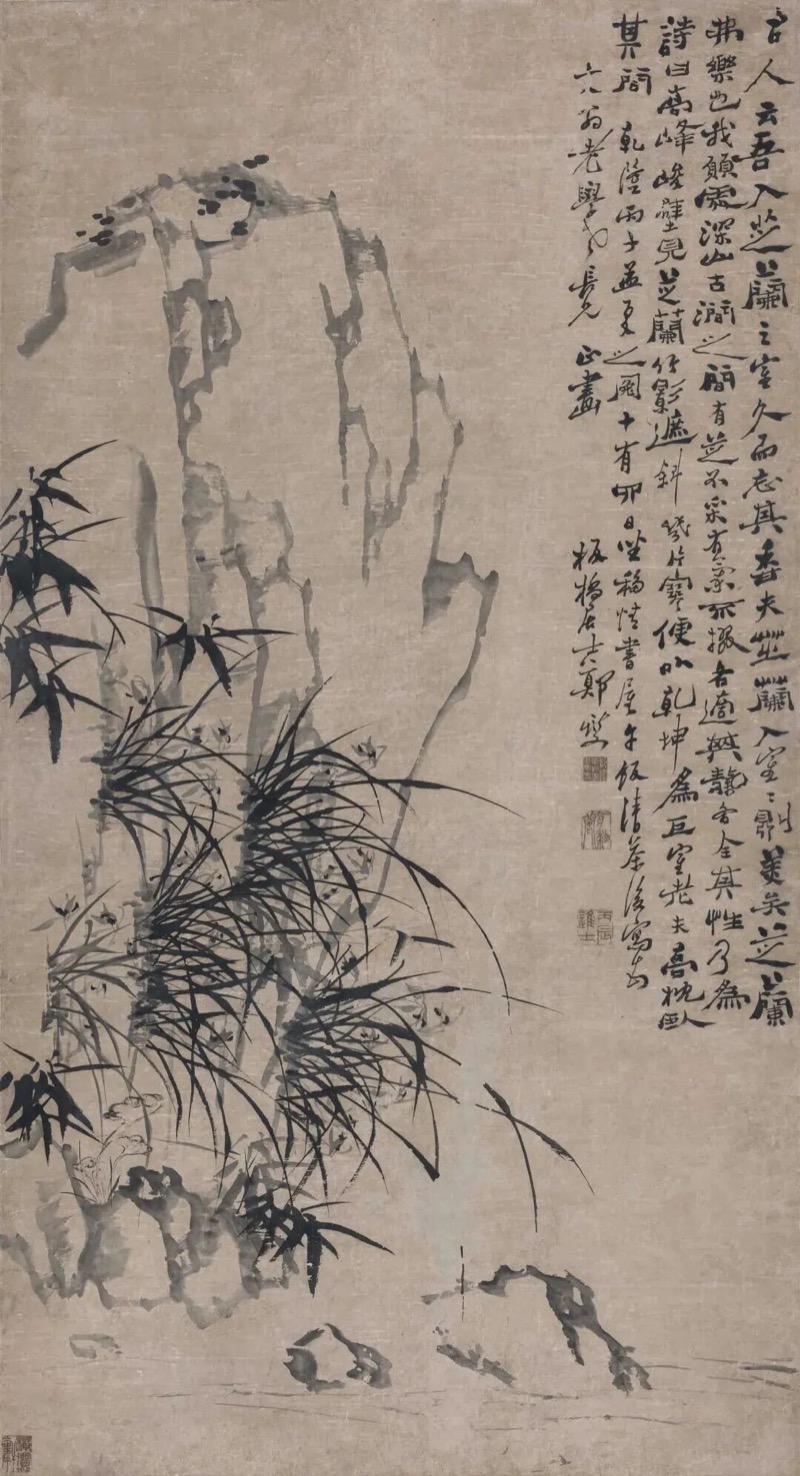 古人云吾入芝蘭之室久而忘其香夫芝蘭入室室則美矣芝蘭
弗樂也我願處深山古澗之間有芝不采有蘭不掇各適其天各全其性乃為
詩曰高峰峻壁見芝蘭竹影遮斜幾片寒便以乾坤為巨室老夫高枕臥
其間 乾隆丙子孟夏之閏十有 日坐 書屋午飯清茶後寫 
六翁老學長兄 正畫
板橋居士鄭燮